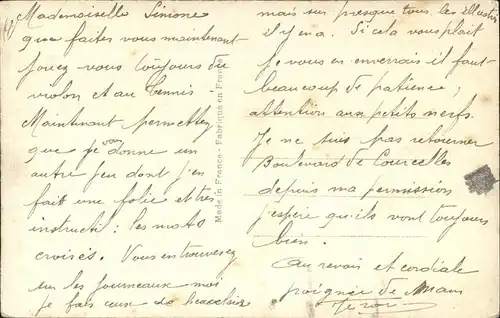 Mademoiselle Simone
que faites vous maintenant
jouez-vous toujours du
violon et au Tennis.
Maintenant permettez
que je vous donne un
autre jeu dont j'en
fait une folie et très
instructif : les mots
croisés. Vous en trouverez
sur les journeaux moi
je fais ceux de
mais sur presque tous les illustrés
il y en a. Si cela vous plait
je vous en enverrais il faut
beaucoup de patience,
attention aux petits nerfs.
Je ne suis pas retourner
Boulevard de Courcelles
depuis ma permission
j'espère qu'ils vont toujours
bien.
Au revoir et cordiale
poignée de Mains
Made in France - Fabriqué en France